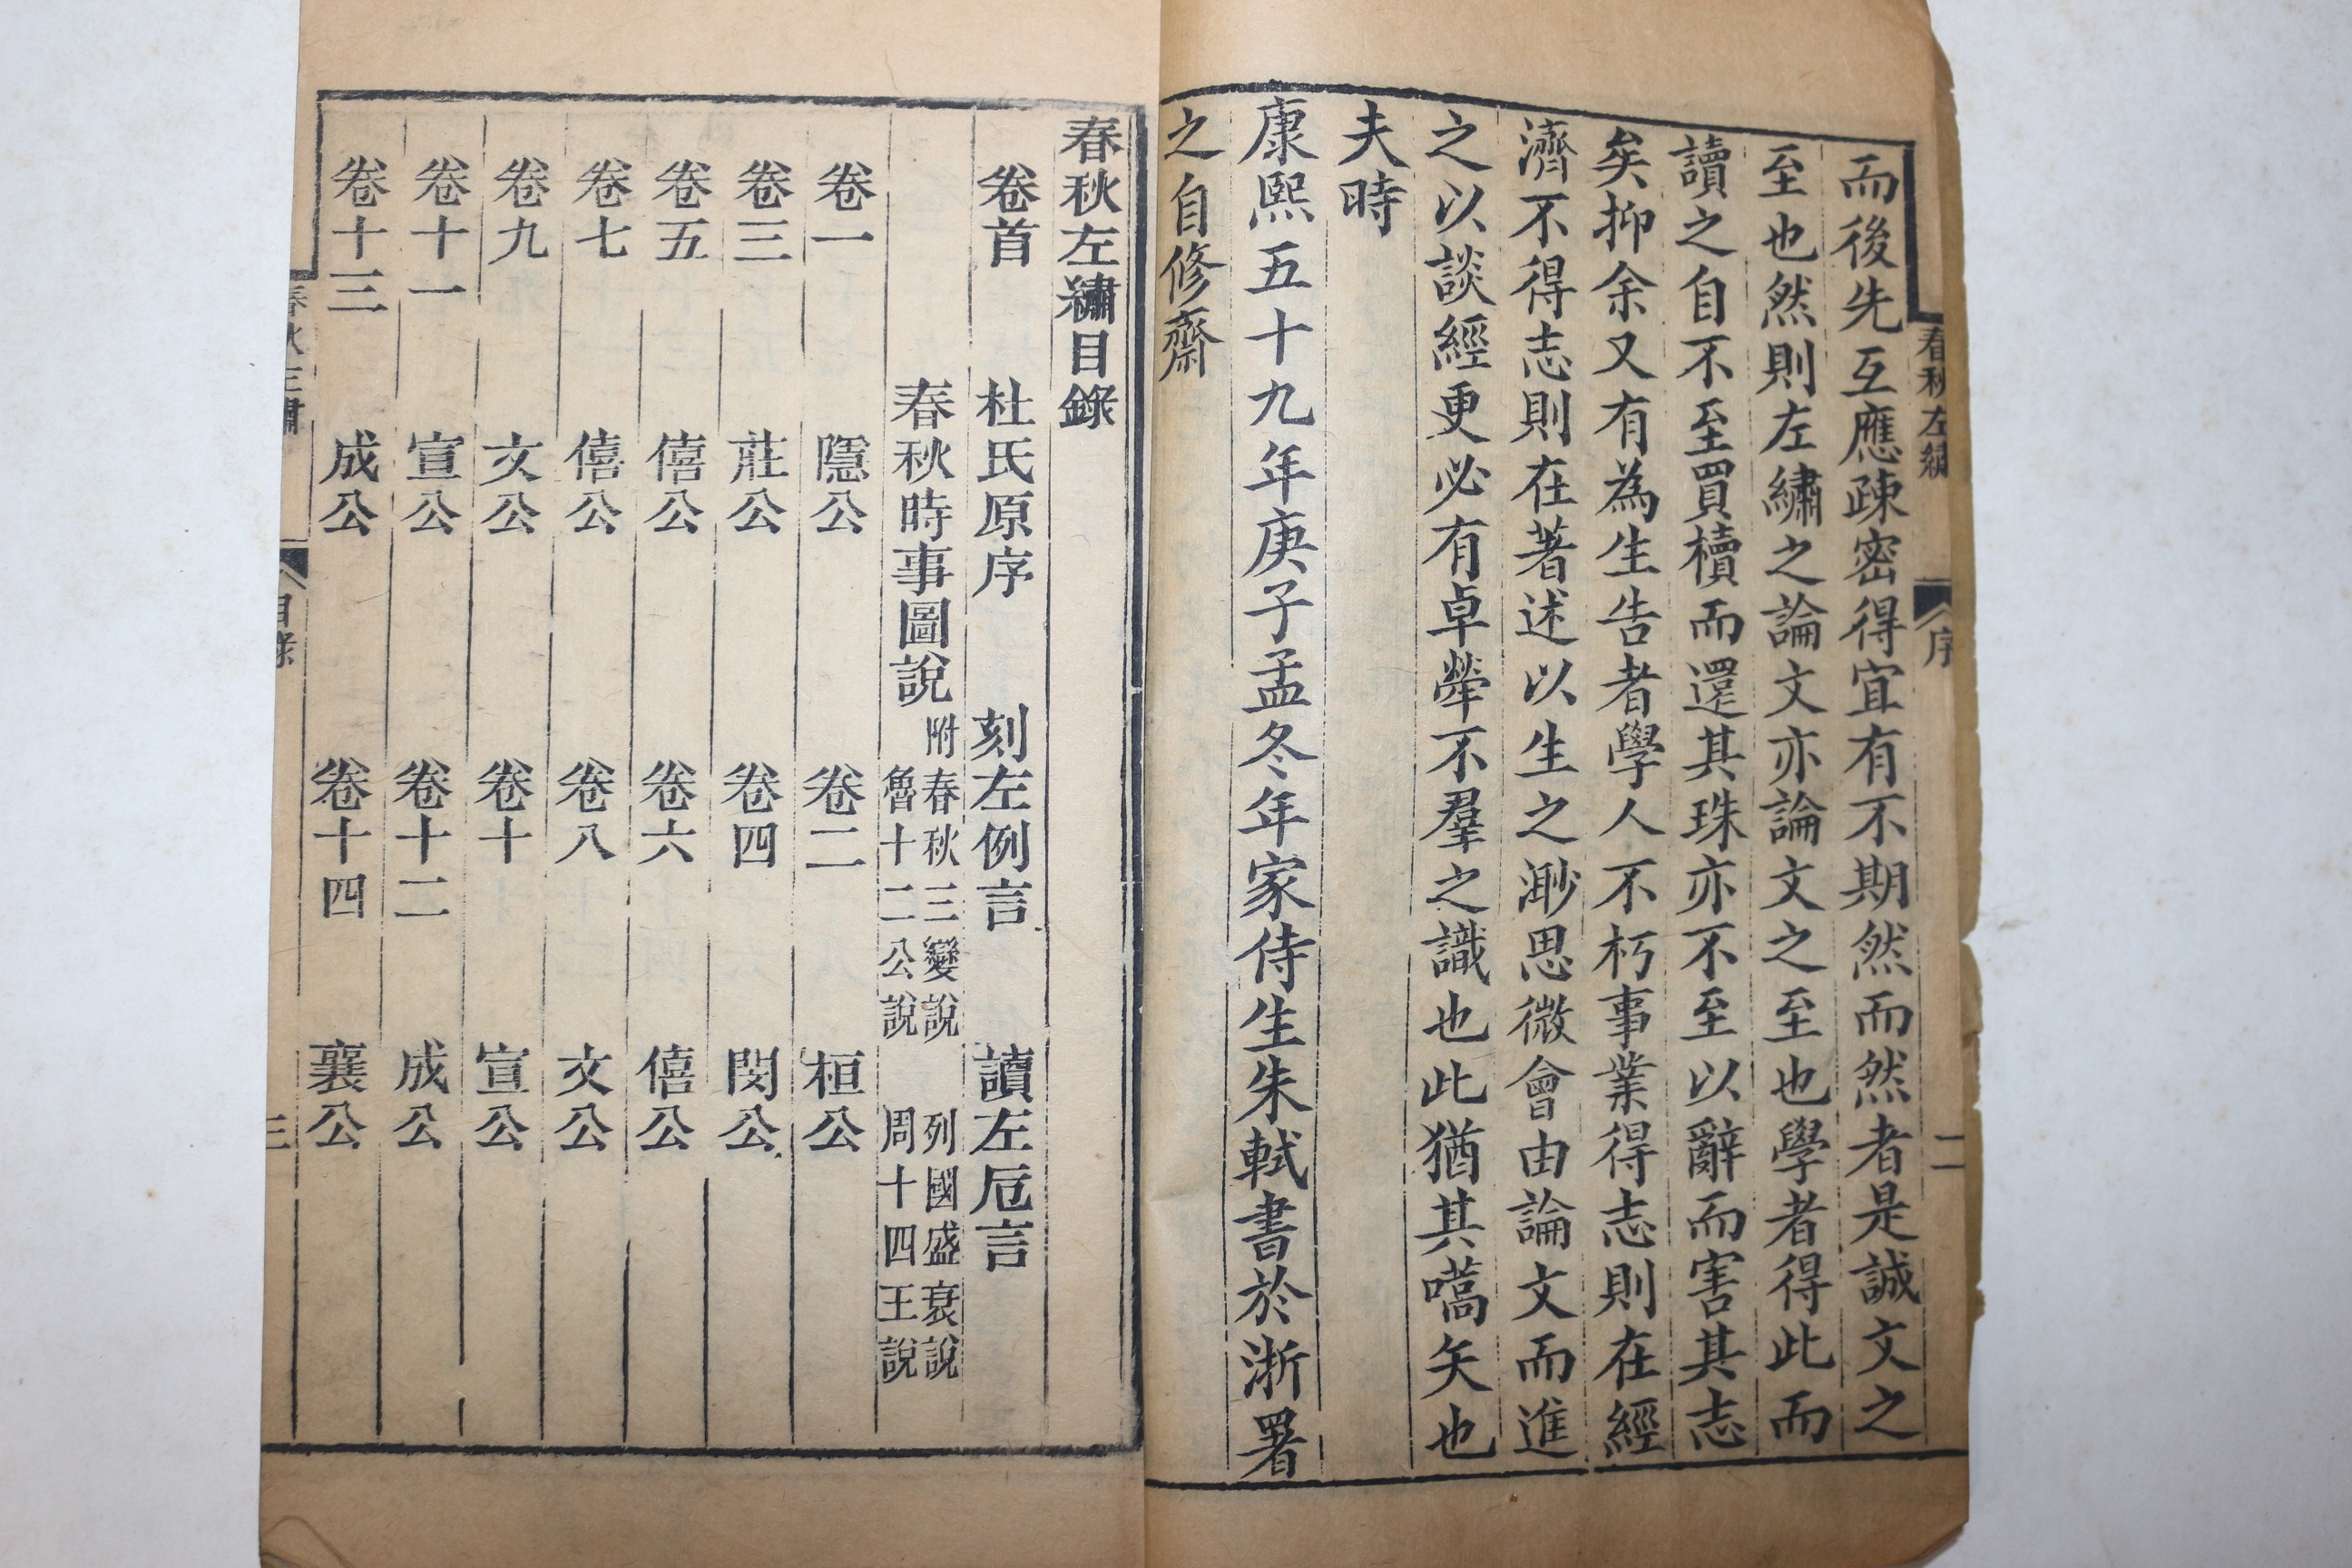 春秋左繡
序
二
而後先互應疎密得宜有不期然而然者是誠文之
至也然則左繡之論文亦論文之至也學者得此而
讀之自不至買櫝而還其珠亦不至以辭而害其志
矣抑余又有為生告者學人不朽事業得志則在經
濟不得志則在著述以生之渺思微會由論文而進
之以談經更必有卓犖不羣之識也此猶其嚆矢也
夫時
康熙五十九年庚子孟冬年家侍生朱軾書於浙署
之自修齋
春秋左繡目錄
卷首 杜氏原序 刻左例言 讀左巵言
春秋時事圖說 附春秋三變說 列國盛衰說
魯十二公說 周十四王說
卷一 隱公 卷二 桓公
卷三 莊公 卷四 閔公
卷五 僖公 卷六 僖公
卷七 僖公 卷八 文公
卷九 文公 卷十 宣公
卷十一 宣公 卷十二 成公
卷十三 成公 卷十四 襄公
春秋左繡
目錄